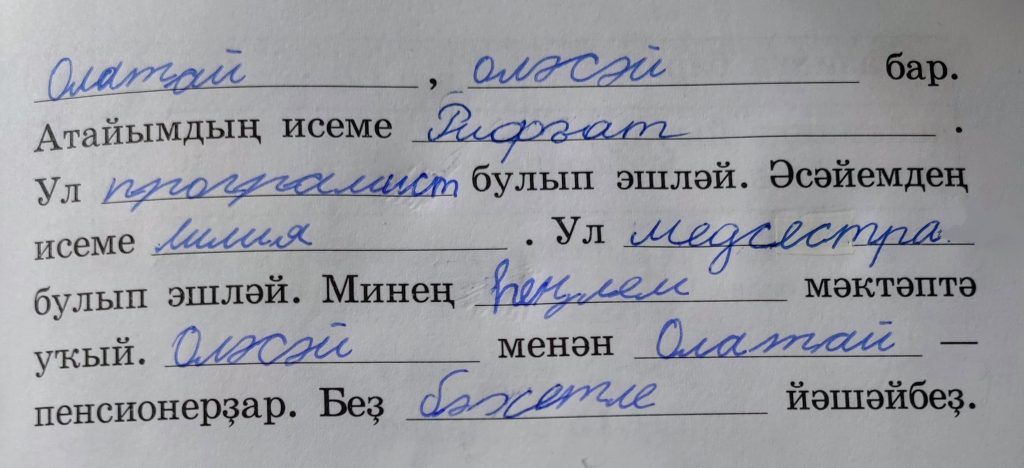 Олатай, оләсәй бар.
Атайымдың исеме Рифғат.
Ул програмист булып эшләй. Әсәйемдең
исеме Лилия. Ул медсестра
булып эшләй. Минең һеңлем мәктәптә
уҡый. Оләсәй менән Олатай —
пенсионерҙар. Беҙ бәхетле йәшәйбеҙ.